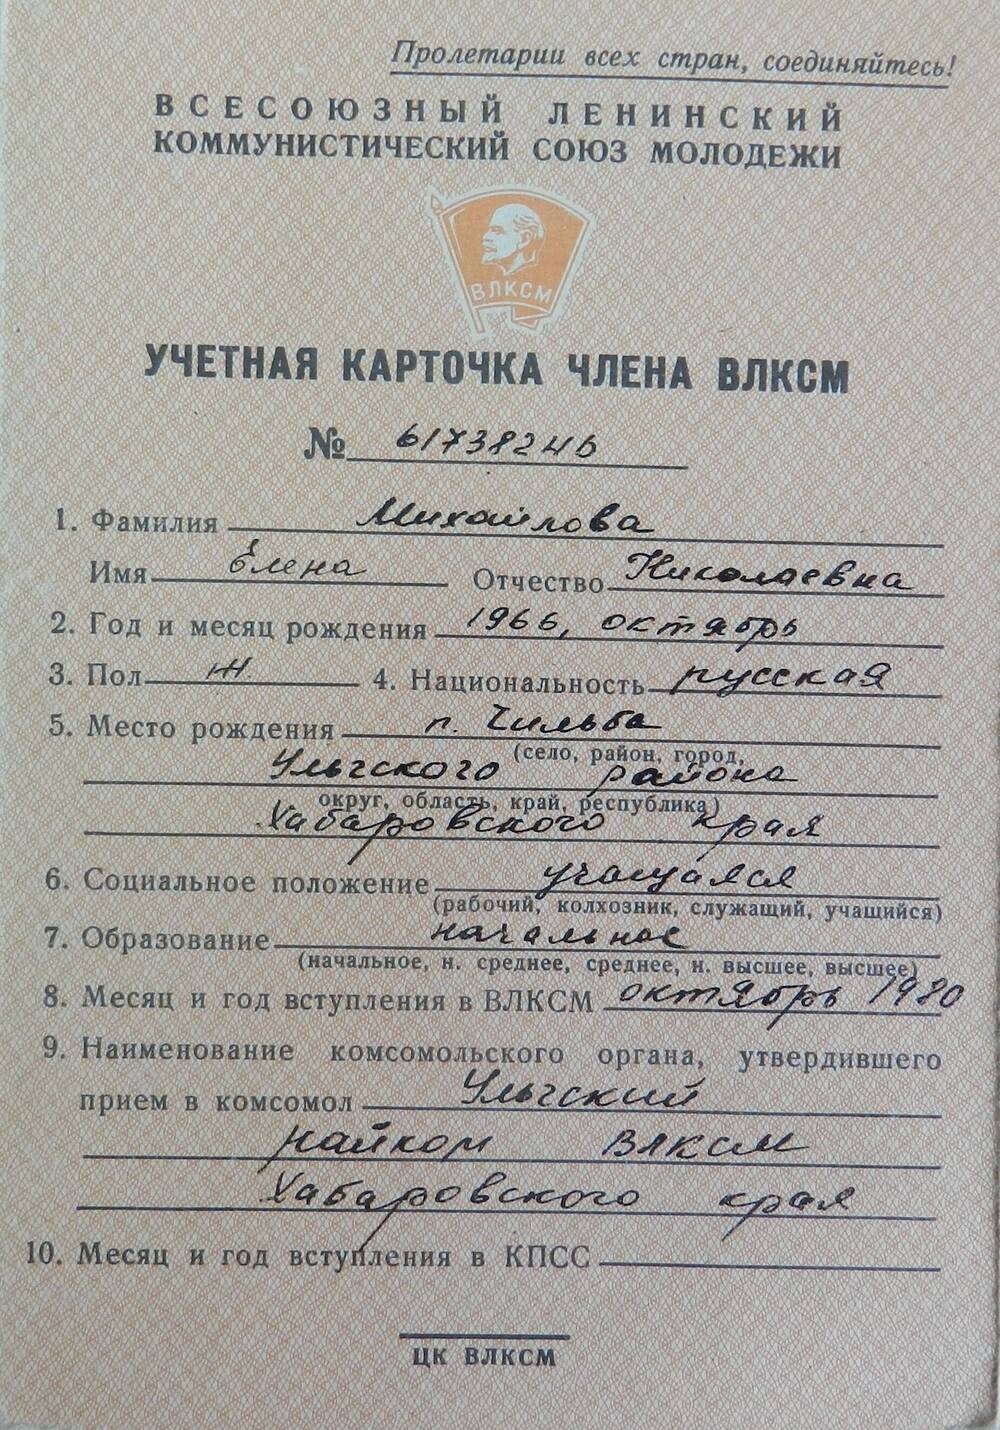 Пролетарии всех стран, соединяйтесь!
ВСЕСОЮЗНЫЙ ЛЕНИНСКИЙ
КОММУНИСТИЧЕСКИЙ СОЮЗ МОЛОДЕЖИ
ВЛКСМ
УЧЕТНАЯ КАРТОЧКА ЧЛЕНА ВЛКСМ
№ 61738246
1. Фамилия Михайлова
Имя Елена Отчество Николаевна
2. Год и месяц рождения 1966, октябрь
3. Пол ж. 4. Национальность русская
5. Место рождения п. Чильба
(село, район, город,
Ульчского района
округ, область, край, республика)
Хабаровского края
6. Социальное положение учащаяся
(рабочий, колхозник, служащий, учащийся)
7. Образование начальное
(начальное, н. среднее, среднее, н. высшее, высшее)
8. Месяц и год вступления в ВЛКСМ октябрь 1980
9. Наименование комсомольского органа, утвердившего
прием в комсомол Ульчский
райком ВЛКСМ
Хабаровского края
10. Месяц и год вступления в КПСС
ЦК ВЛКСМ